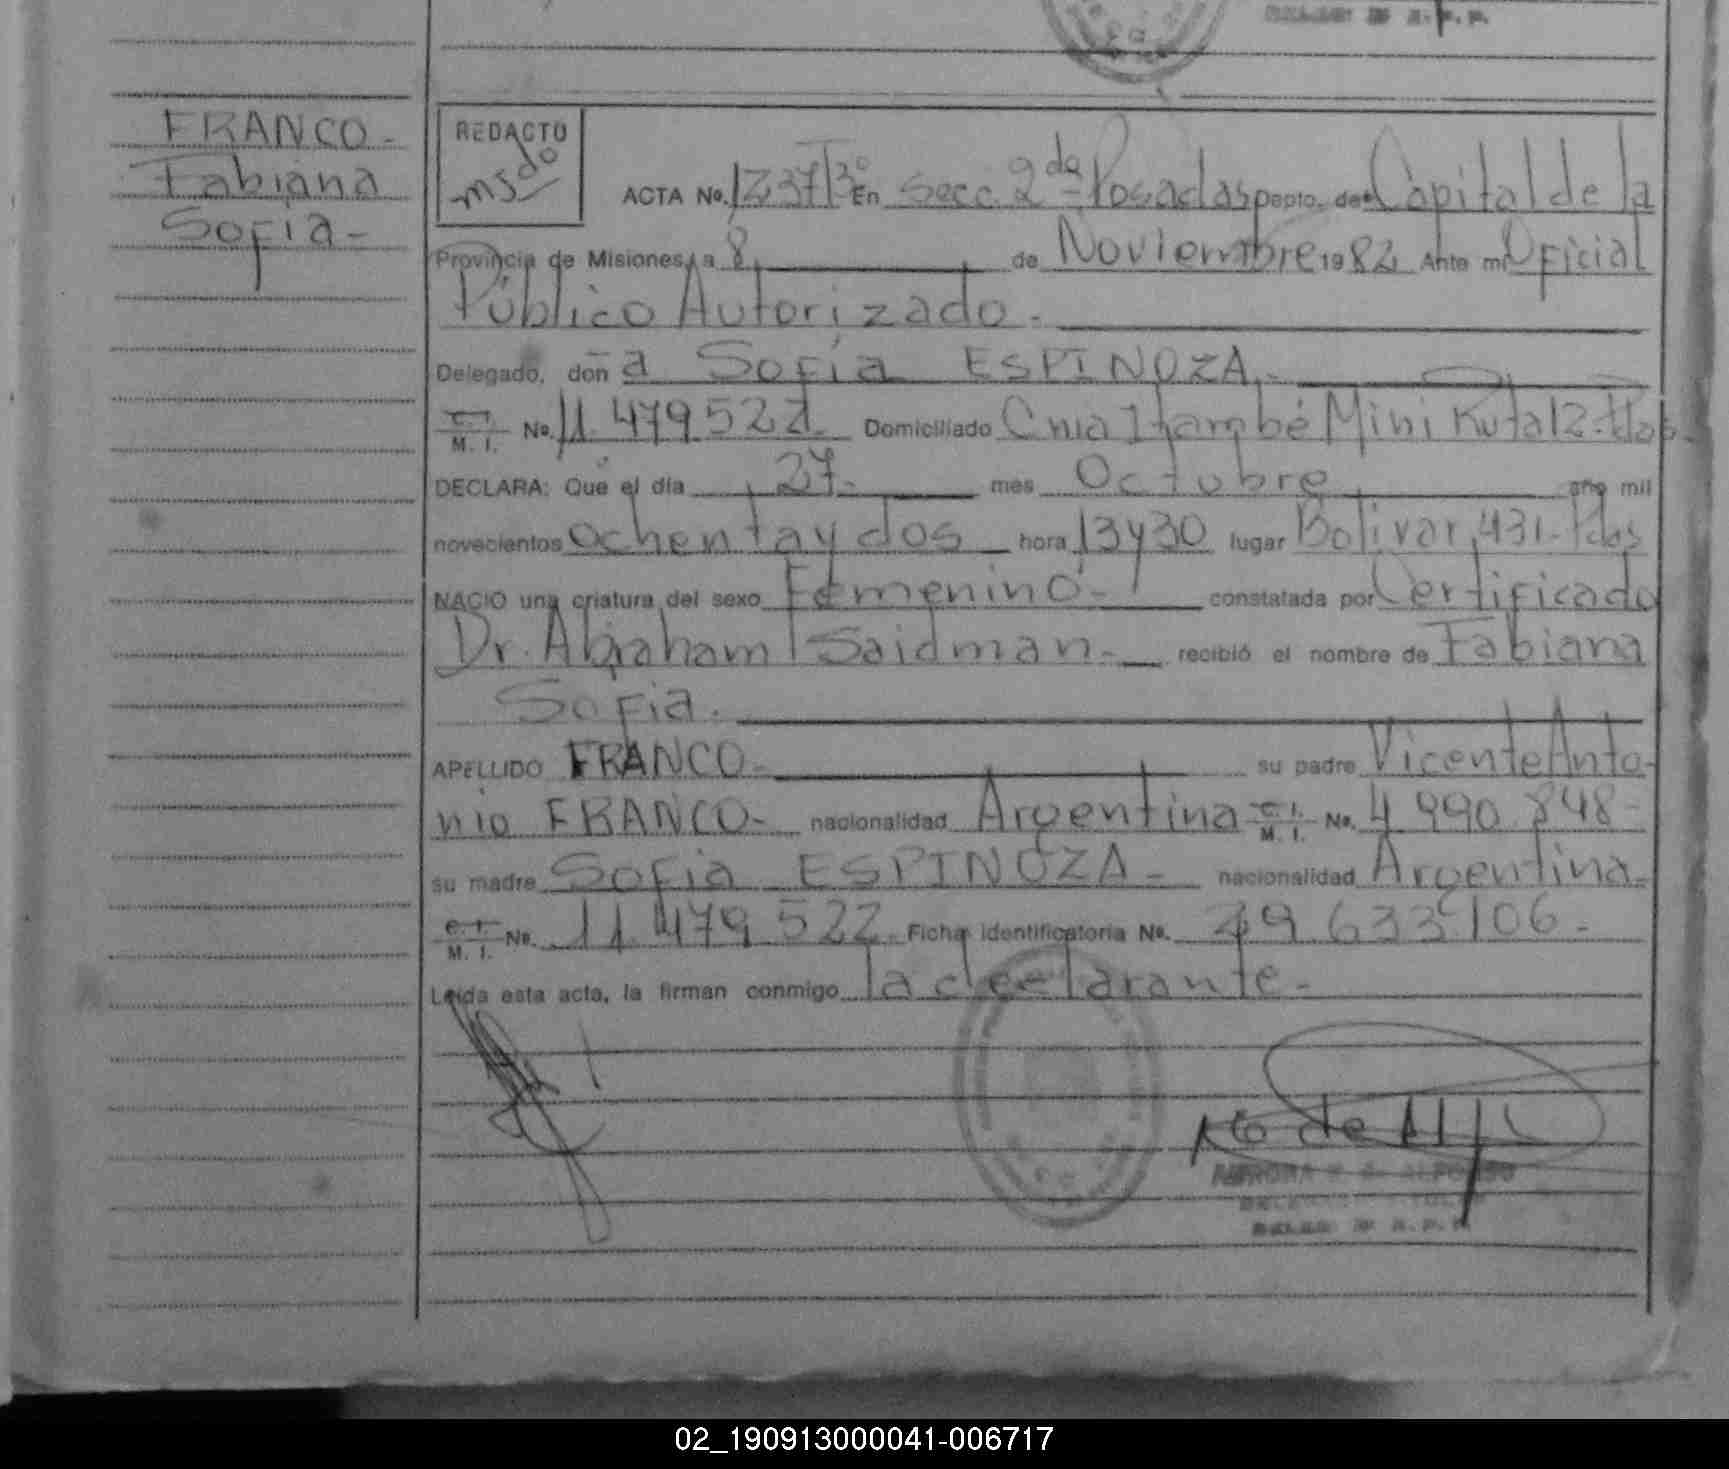 FRANCO-
Fabiana
Sofia-
REDACTO
msdo
ACTA No. 1237 Tº3º En Secc. 2da Posadas Depto. de Capital de la
Provincia de Misiones, a 8 de Noviembre 1982 Ante mi Oficial
Público Autorizado.-
Delegado, don a Sofía ESPINOZA.-
C. I.
M. I. No. 11.479522 Domiciliado Cnia Itambé Mini Ruta 12-Pdas-
DECLARA: Que el día 27- mes Octubre año mil
novecientos ochenta y dos hora 13y30 lugar Bolivar 431-Pdas
NACIO una criatura del sexo Femenino- constatada por Certificado
Dr. Abraham Saidman.- recibió el nombre de Fabiana
Sofia.
APELLIDO FRANCO- su padre Vicente Anto-
nio FRANCO- nacionalidad Argentina C. I.
M. I. No. 4 990.848-
su madre Sofia ESPINOZA- nacionalidad Argentina-
C. I.
M. I. No. 11.479.522- Ficha identificatoria No. 29.633.106-
Leída esta acta, la firman conmigo la declarante-
02_190913000041-006717